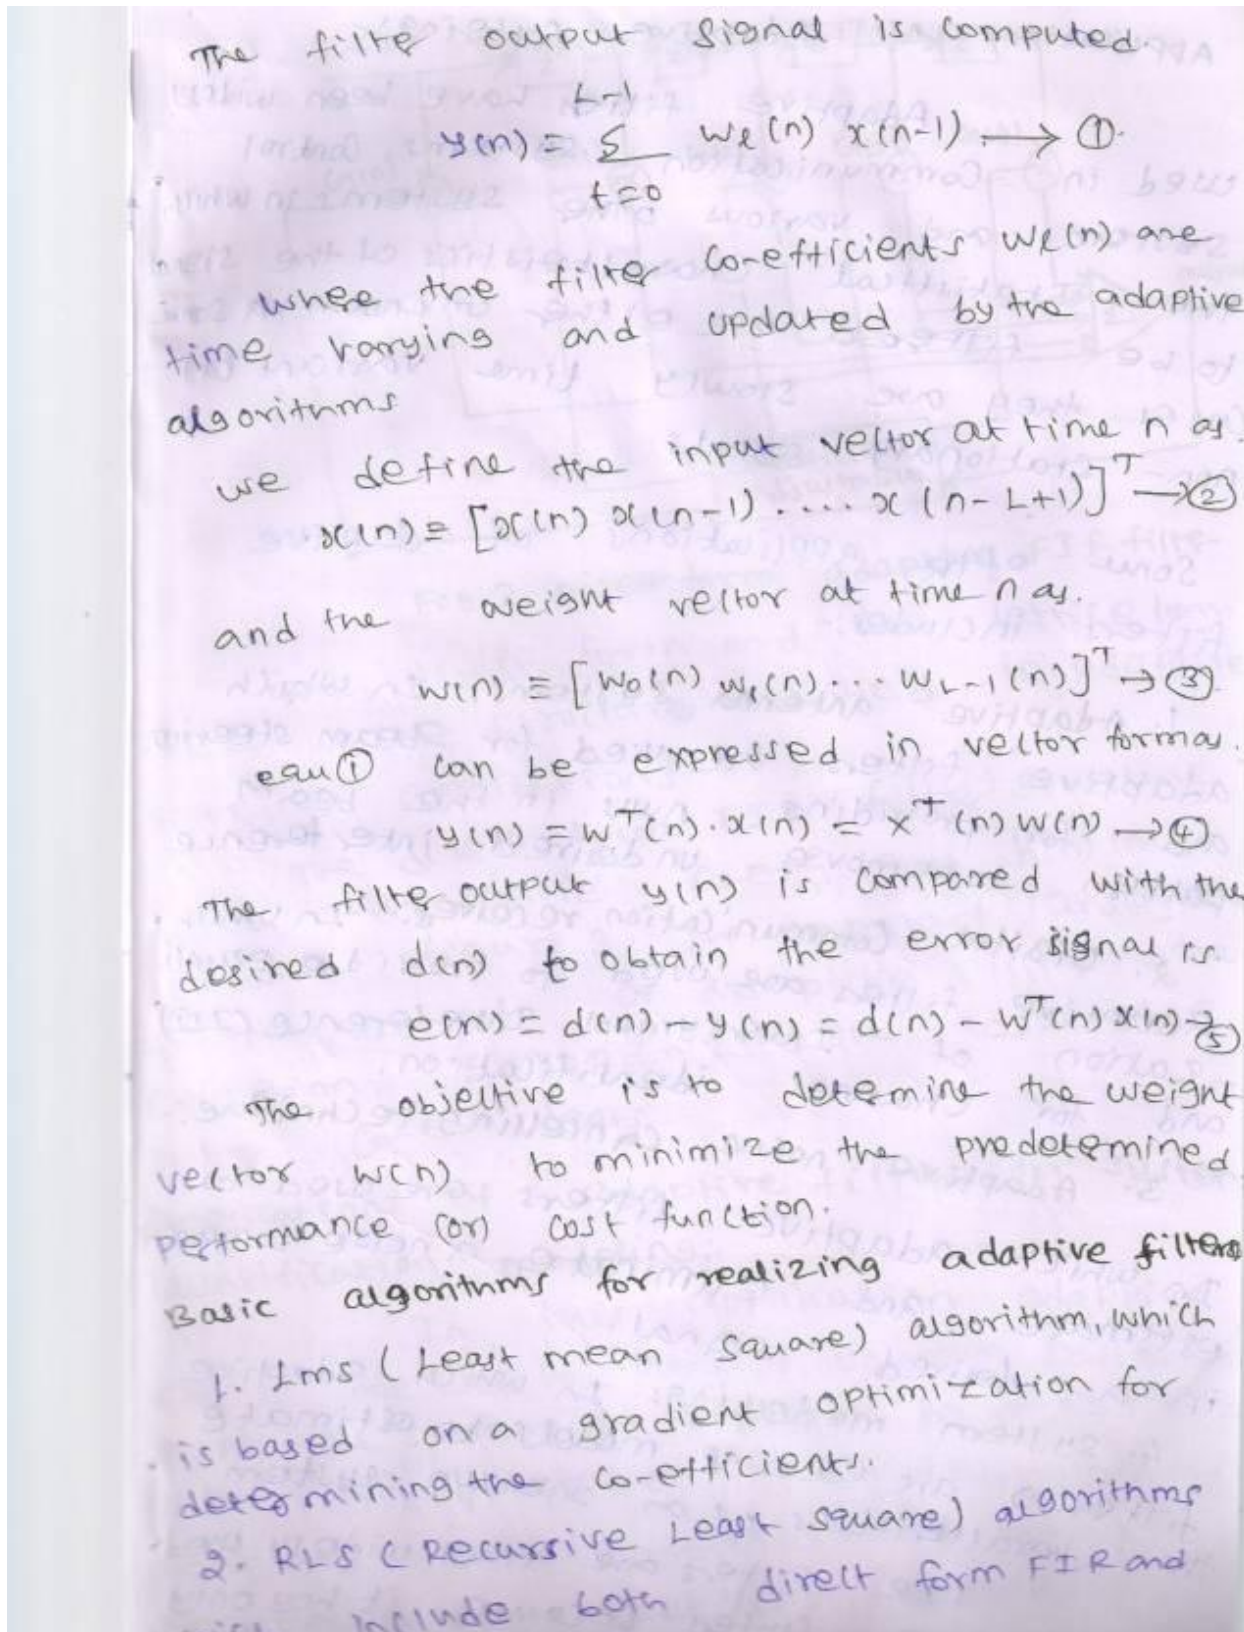 The filter output signal is computed.
L-1
y(n) = Σ wℓ(n) x(n-1) → ①
t=0
where the filter co-efficients wℓ(n) are
time varying and updated by the adaptive
algorithms
we define the input vector at time n as.
x(n) ≡ [x(n) x(n-1) .... x(n-L+1)]ᵀ → ②
and the weight vector at time n as.
w(n) ≡ [w₀(n) w₁(n)... w_L-1(n)]ᵀ → ③
equ① can be expressed in vector form as.
y(n) = wᵀ(n).x(n) = xᵀ(n) w(n) → ④
The filter output y(n) is compared with the
desired d(n) to obtain the error signal is
e(n) = d(n) - y(n) = d(n) - wᵀ(n) x(n) → ⑤
The objective is to determine the weight
vector w(n) to minimize the predetermined
performance (or) cost function.
Basic algorithms for realizing adaptive filters
1. Lms (Least mean square) algorithm, which
is based on a gradient optimization for
determining the co-efficients.
2. RLS (Recursive Least square) algorithms
include both direct form FIR and